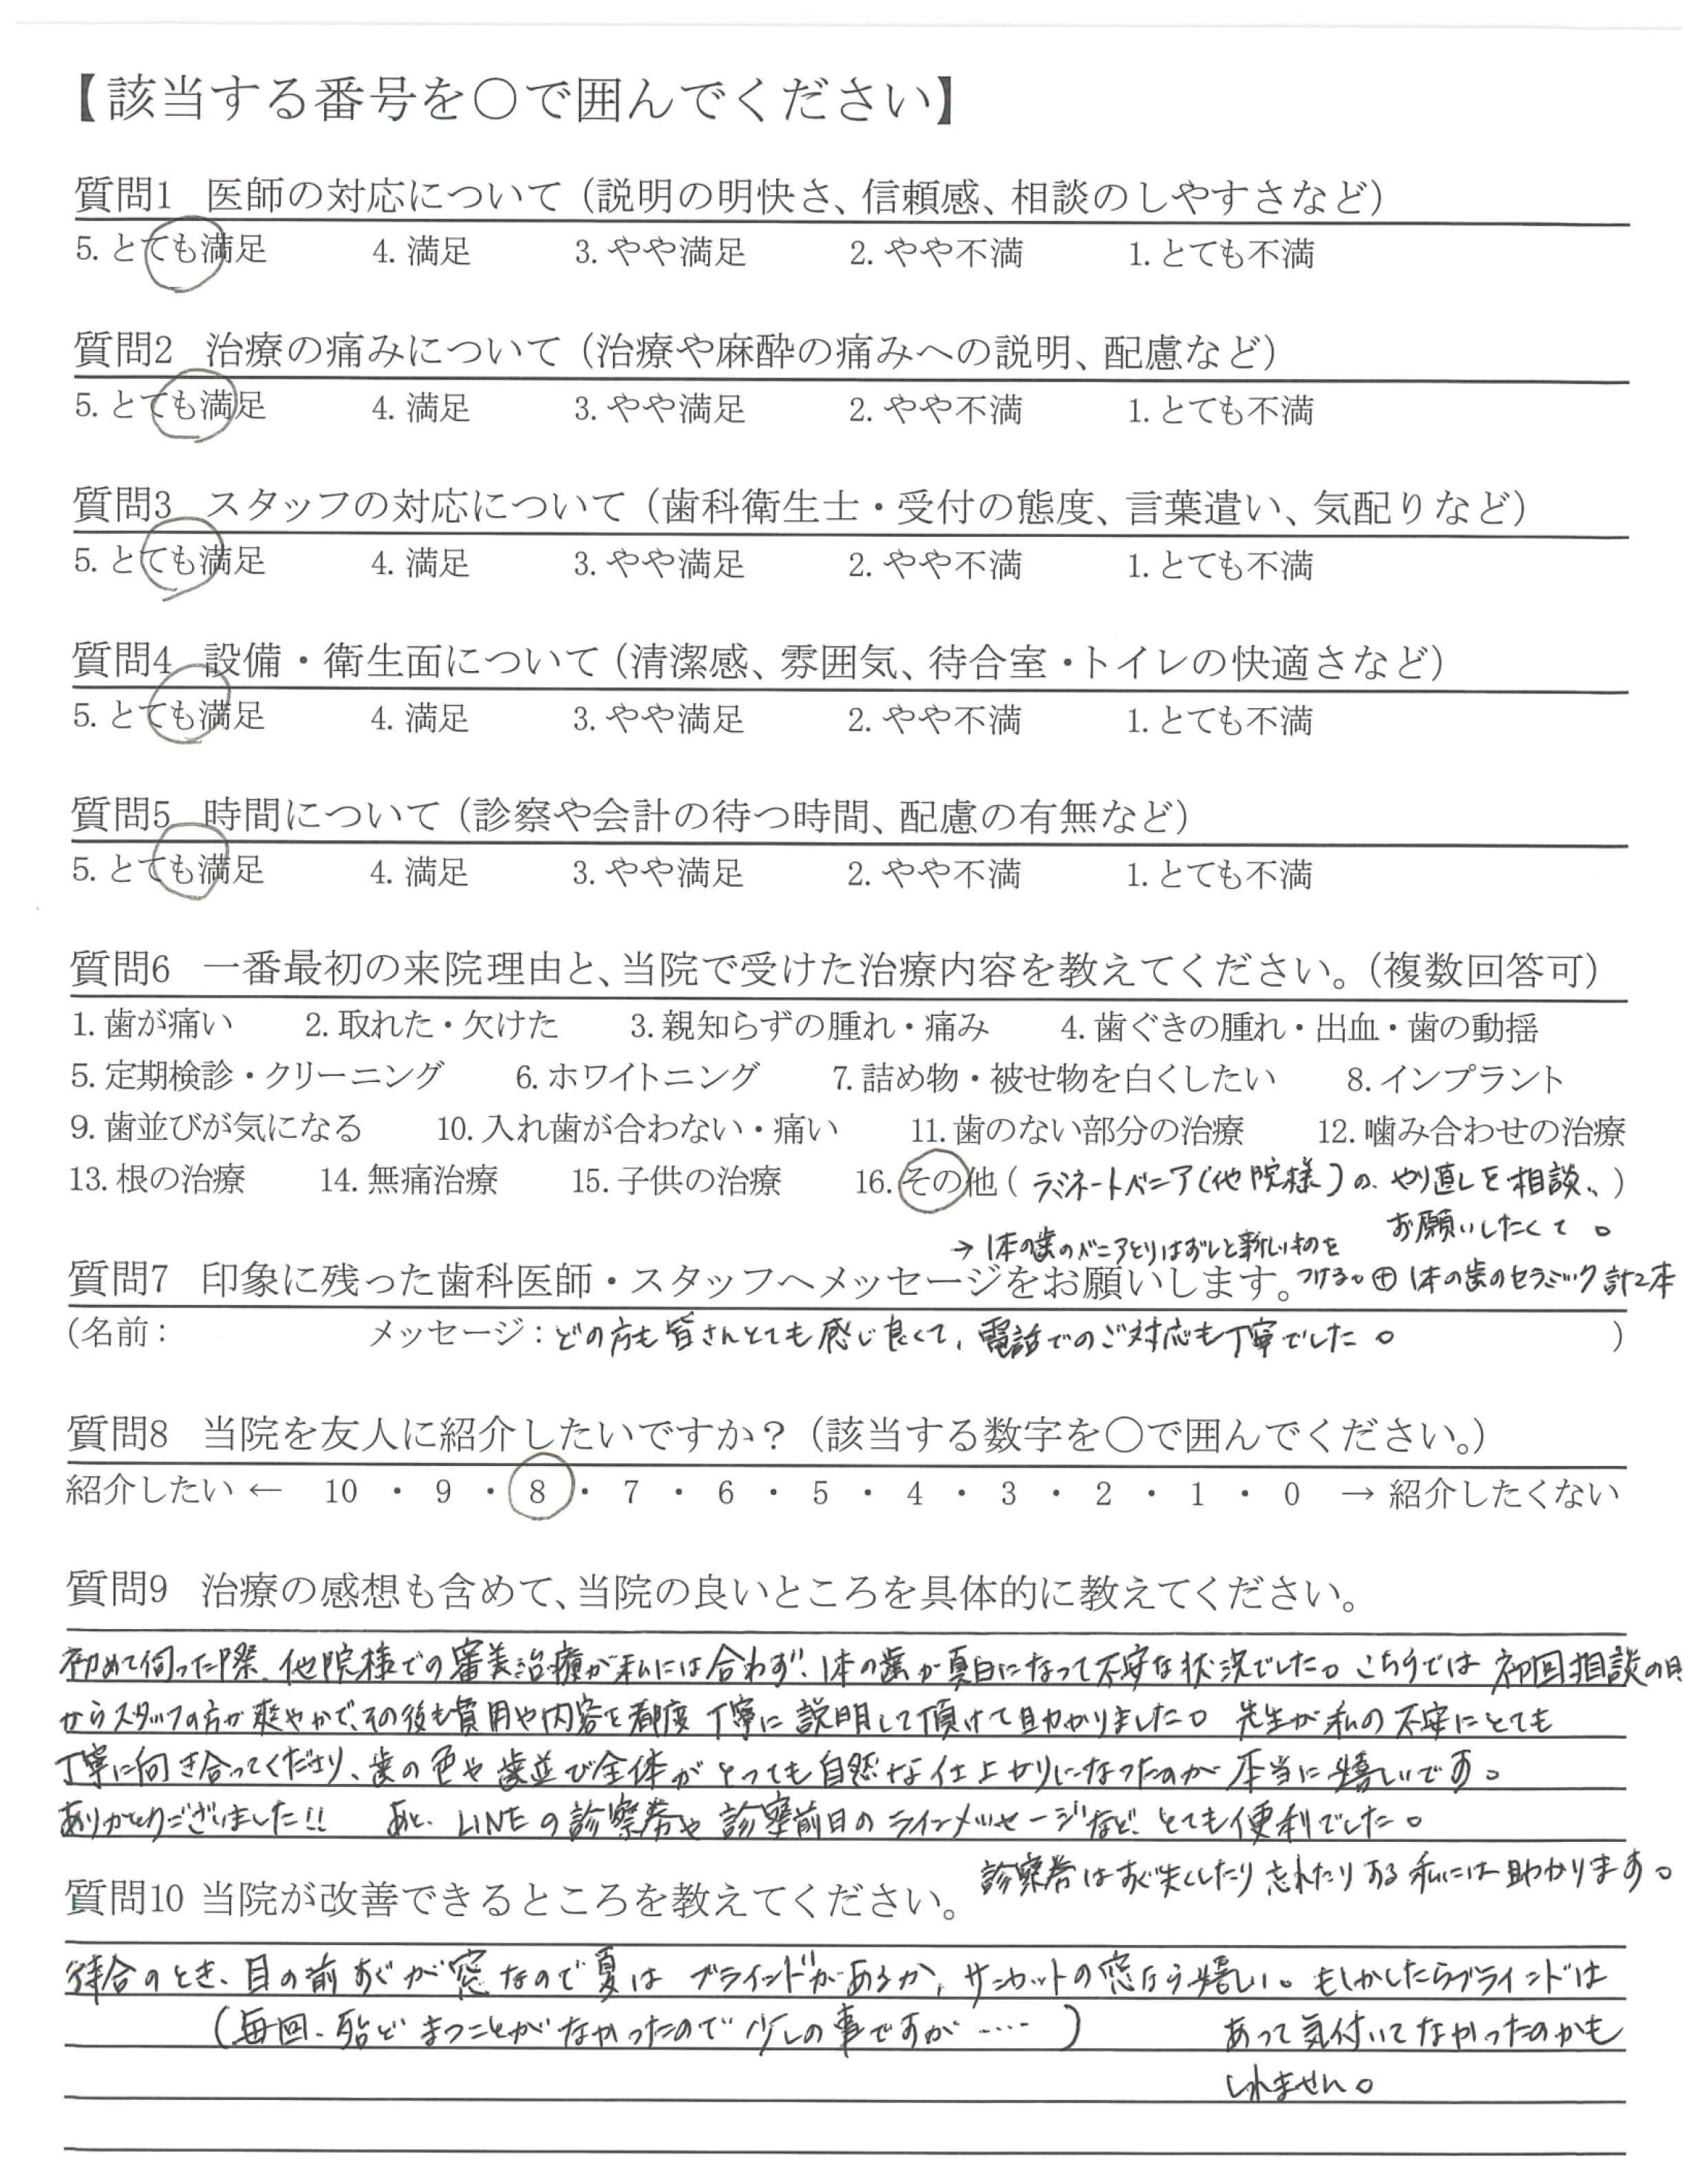 【該当する番号を○で囲んでください】
質問1 医師の対応について（説明の明快さ、信頼感、相談のしやすさなど）
5. とても満足 4. 満足 3. やや満足 2. やや不満 1. とても不満
質問2 治療の痛みについて（治療や麻酔の痛みへの説明、配慮など）
5. とても満足 4. 満足 3. やや満足 2. やや不満 1. とても不満
質問3 スタッフの対応について（歯科衛生士・受付の態度、言葉遣い、気配りなど）
5. とても満足 4. 満足 3. やや満足 2. やや不満 1. とても不満
質問4 設備・衛生面について（清潔感、雰囲気、待合室・トイレの快適さなど）
5. とても満足 4. 満足 3. やや満足 2. やや不満 1. とても不満
質問5 時間について（診察や会計の待つ時間、配慮の有無など）
5. とても満足 4. 満足 3. やや満足 2. やや不満 1. とても不満
質問6 一番最初の来院理由と、当院で受けた治療内容を教えてください。（複数回答可）
1. 歯が痛い 2. 取れた・欠けた 3. 親知らずの腫れ・痛み 4. 歯ぐきの腫れ・出血・歯の動揺
5. 定期検診・クリーニング 6. ホワイトニング 7. 詰め物・被せ物を白くしたい 8. インプラント
9. 歯並びが気になる 10. 入れ歯が合わない・痛い 11. 歯のない部分の治療 12. 噛み合わせの治療
13. 根の治療 14. 無痛治療 15. 子供の治療 16. その他（ラミネートベニア（他院様）の、やり直しを相談、）
お願いしたくて。
→1本の歯のベニアとりはずしと新しいものを
質問7 印象に残った歯科医師・スタッフへメッセージをお願いします。
つける。⊕1本の歯のセラミック計2本
（名前： メッセージ：どの方も皆さんとても感じ良くて、電話でのご対応も丁寧でした。）
質問8 当院を友人に紹介したいですか？（該当する数字を○で囲んでください。）
紹介したい ← 10 ・ 9 ・ 8 ・ 7 ・ 6 ・ 5 ・ 4 ・ 3 ・ 2 ・ 1 ・ 0 → 紹介したくない
質問9 治療の感想も含めて、当院の良いところを具体的に教えてください。
初めて伺った際、他院様での審美治療が私には合わず、1本の歯が真白になって不安な状況でした。こちらでは初回相談の日
からスタッフの方が爽やかで、その後も費用や内容を都度丁寧に説明して頂けて助かりました。先生が私の不安にとても
丁寧に向き合ってくださり、歯の色や歯並び全体がとっても自然な仕上がりになったのが本当に嬉しいです。
ありがとうございました!! あと、LINEの診察券や診察前日のラインメッセージなど、とても便利でした。
診察券はすぐ失くしたり忘れたりする私には助かります。
質問10 当院が改善できるところを教えてください。
待合のとき、目の前すぐが窓なので夏はブラインドがあるか、サンカットの窓なら嬉しい。もしかしたらブラインドは
（毎回、殆どまつことがなかったので少しの事ですが‥‥） あって気付いてなかったのかも
しれません。